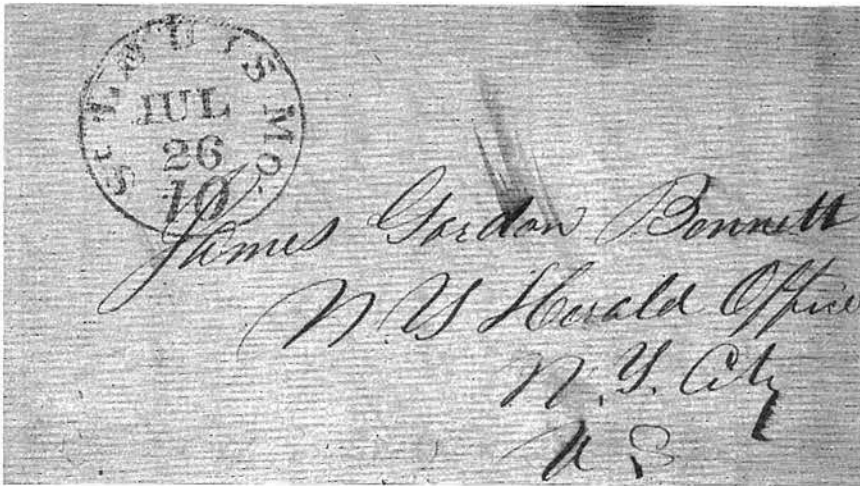 St LOUIS Mo.
JUL
26
10
James Gordon Bennett
N. Y Herald Office
N. Y. City
U S